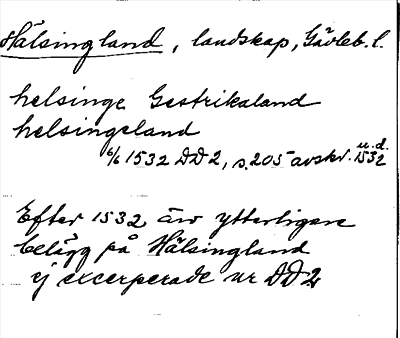 Hälsingland, landskap, Gävleb. l.
helsinge Gestrikaland
helsingeland
6/6 1532 DD 2, s. 205 avskr. u.d. 1532
Efter 1532 äro ytterligare
belägg på Hälsingland
ej excerperade ur DD 2